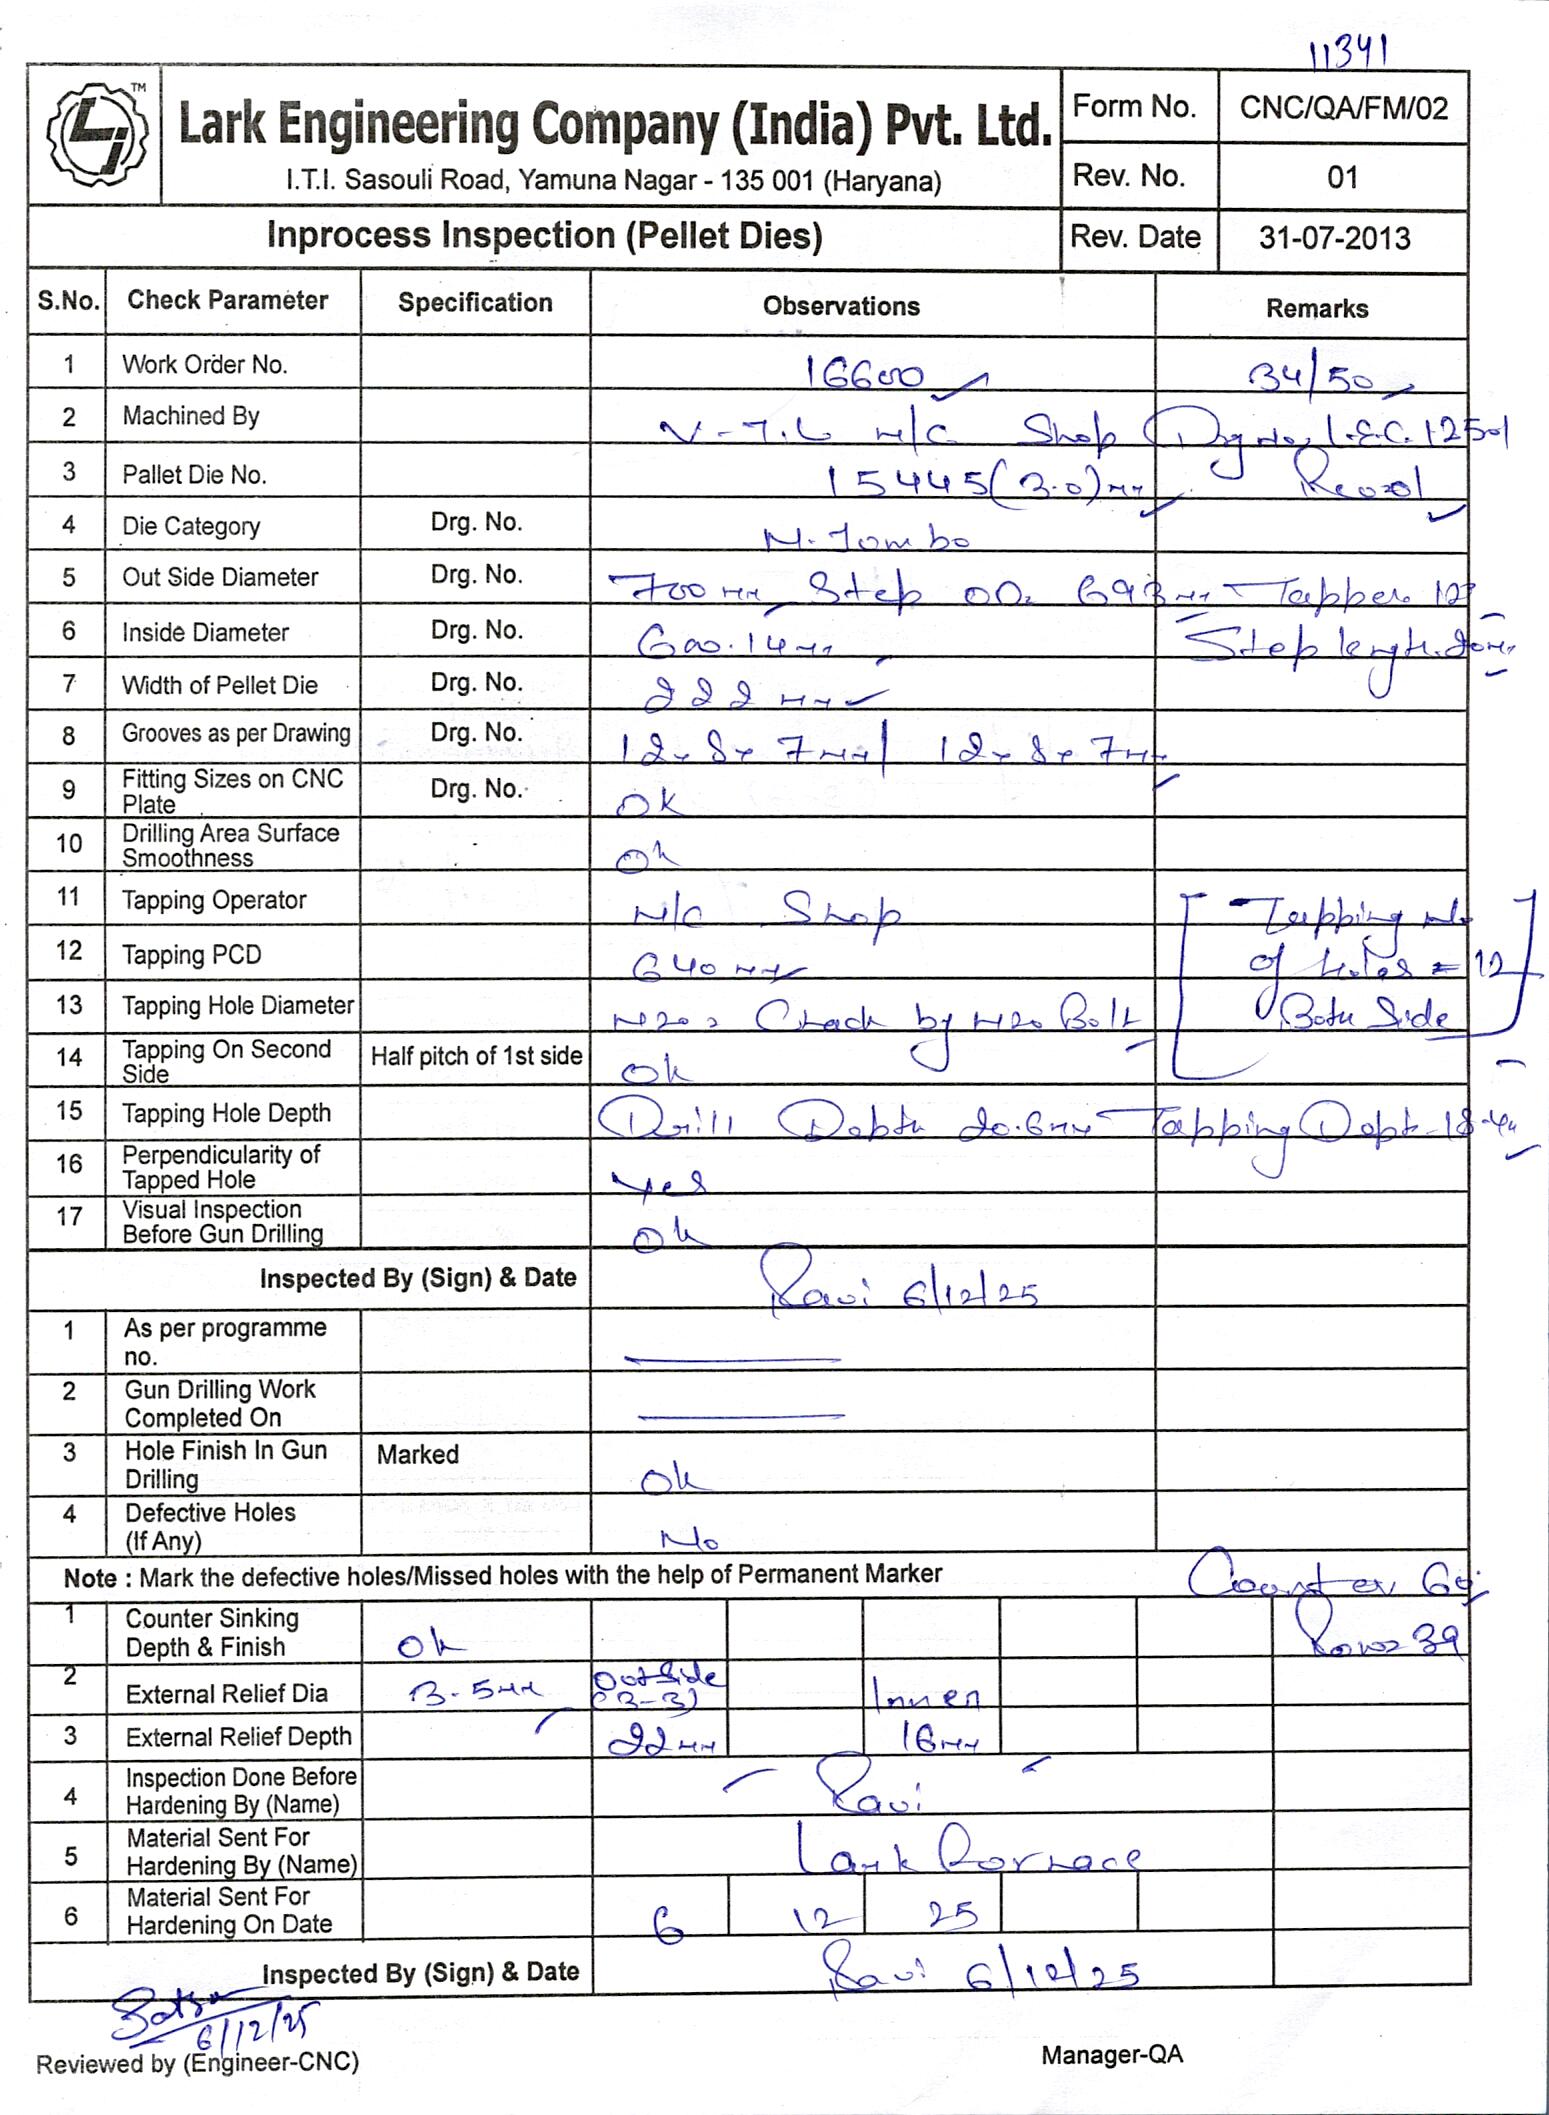 11341
TM
Lark Engineering Company (India) Pvt. Ltd.
I.T.I. Sasouli Road, Yamuna Nagar - 135 001 (Haryana)
Form No. CNC/QA/FM/02
Rev. No. 01
Inprocess Inspection (Pellet Dies)
Rev. Date 31-07-2013
S.No. Check Parameter Specification Observations Remarks
1 Work Order No. 16600 34/50
2 Machined By V-T.L M/C Shop Drg No. L.E.C. 12501
3 Pallet Die No. 15445 (3.0)mm Rev.01
4 Die Category Drg. No. M. Jombo
5 Out Side Diameter Drg. No. 700mm Step OD. 693mm Tapper
6 Inside Diameter Drg. No. 600.14mm Step length. 20mm
7 Width of Pellet Die Drg. No. 222mm
8 Grooves as per Drawing Drg. No. 12x8x7mm/ 12x8x7mm
9 Fitting Sizes on CNC Plate Drg. No. OK
10 Drilling Area Surface Smoothness Ok
11 Tapping Operator M/C Shop Tapping
12 Tapping PCD 640mm of holes = 12
13 Tapping Hole Diameter M20, Chack by M20 Bolt Both Side
14 Tapping On Second Side Half pitch of 1st side Ok
15 Tapping Hole Depth Drill Depth 20.6mm Tapping Dept.
16 Perpendicularity of Tapped Hole Yes
17 Visual Inspection Before Gun Drilling Ok
Inspected By (Sign) & Date Ravi 6/12/25
1 As per programme no.
2 Gun Drilling Work Completed On
3 Hole Finish In Gun Drilling Marked Ok
4 Defective Holes (If Any) No
Note : Mark the defective holes/Missed holes with the help of Permanent Marker Counter
1 Counter Sinking Depth & Finish Ok Rows 39
2 External Relief Dia 3.5mm OutSide (3-3) Inner
3 External Relief Depth 22mm 16mm
4 Inspection Done Before Hardening By (Name) Ravi
5 Material Sent For Hardening By (Name) Lark Fornace
6 Material Sent For Hardening On Date 6 12 25
Inspected By (Sign) & Date Ravi 6/12/25
6/12/25
Reviewed by (Engineer-CNC) Manager-QA